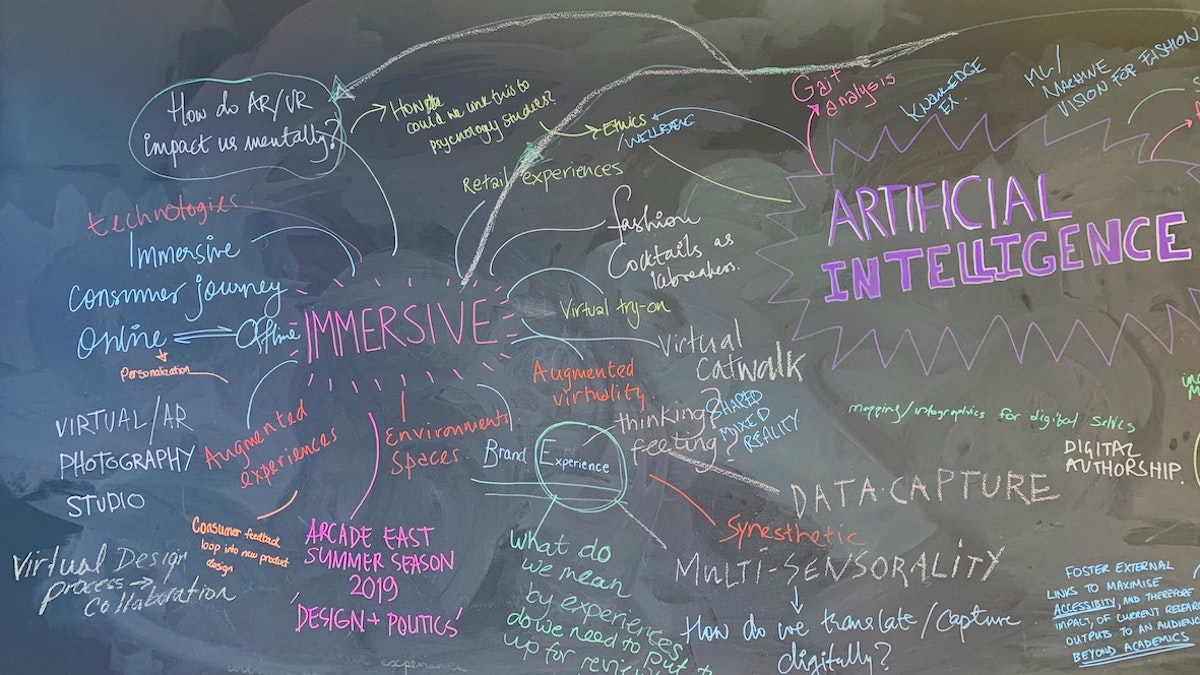 How do AR/VR
impact us mentally?
How
could we link this to
psychology studies?
Ethics
/WELLBEING
Retail experiences
Gait
analysis
KNOWLEDGE
EX.
ML/
MACHINE
VISION FOR FASHION
ARTIFICIAL
INTELLIGENCE
technologies
Immersive
Consumer journey
Online
Offline
Personalization
IMMERSIVE
fashion
Cocktails as
Virtual try-on
Virtual
Catwalk
Augmented
virtuality
thinking?
feeling?
SHARED
MIXED
REALITY
VIRTUAL/AR
PHOTOGRAPHY
STUDIO
Augmented
experiences
Environments
Spaces
Brand
Experience
mapping/infographics for digital selves
DIGITAL
AUTHORSHIP.
DATA-CAPTURE
Synesthetic
MULTI-SENSORALITY
How do we translate/capture
digitally?
Consumer feedback
loop into new product
design
ARCADE EAST
SUMMER SEASON
2019
'DESIGN + POLITICS'
Virtual Design
process →
Collaboration
What do
we mean
by experiences
do we need to put
up for
experience
FOSTER EXTERNAL
LINKS TO MAXIMISE
ACCESSIBITY, AND THEREFORE
IMPACT, OF CURRENT RESEARCH
OUTPUTS TO AN AUDIENCE
BEYOND ACADEMICS